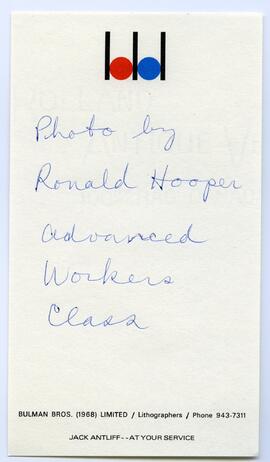 Photo by
Ronald Hooper
Advanced
Workers
Class
BULMAN BROS. (1968) LIMITED / Lithographers / Phone 943-7311
JACK ANTLIFF--AT YOUR SERVICE